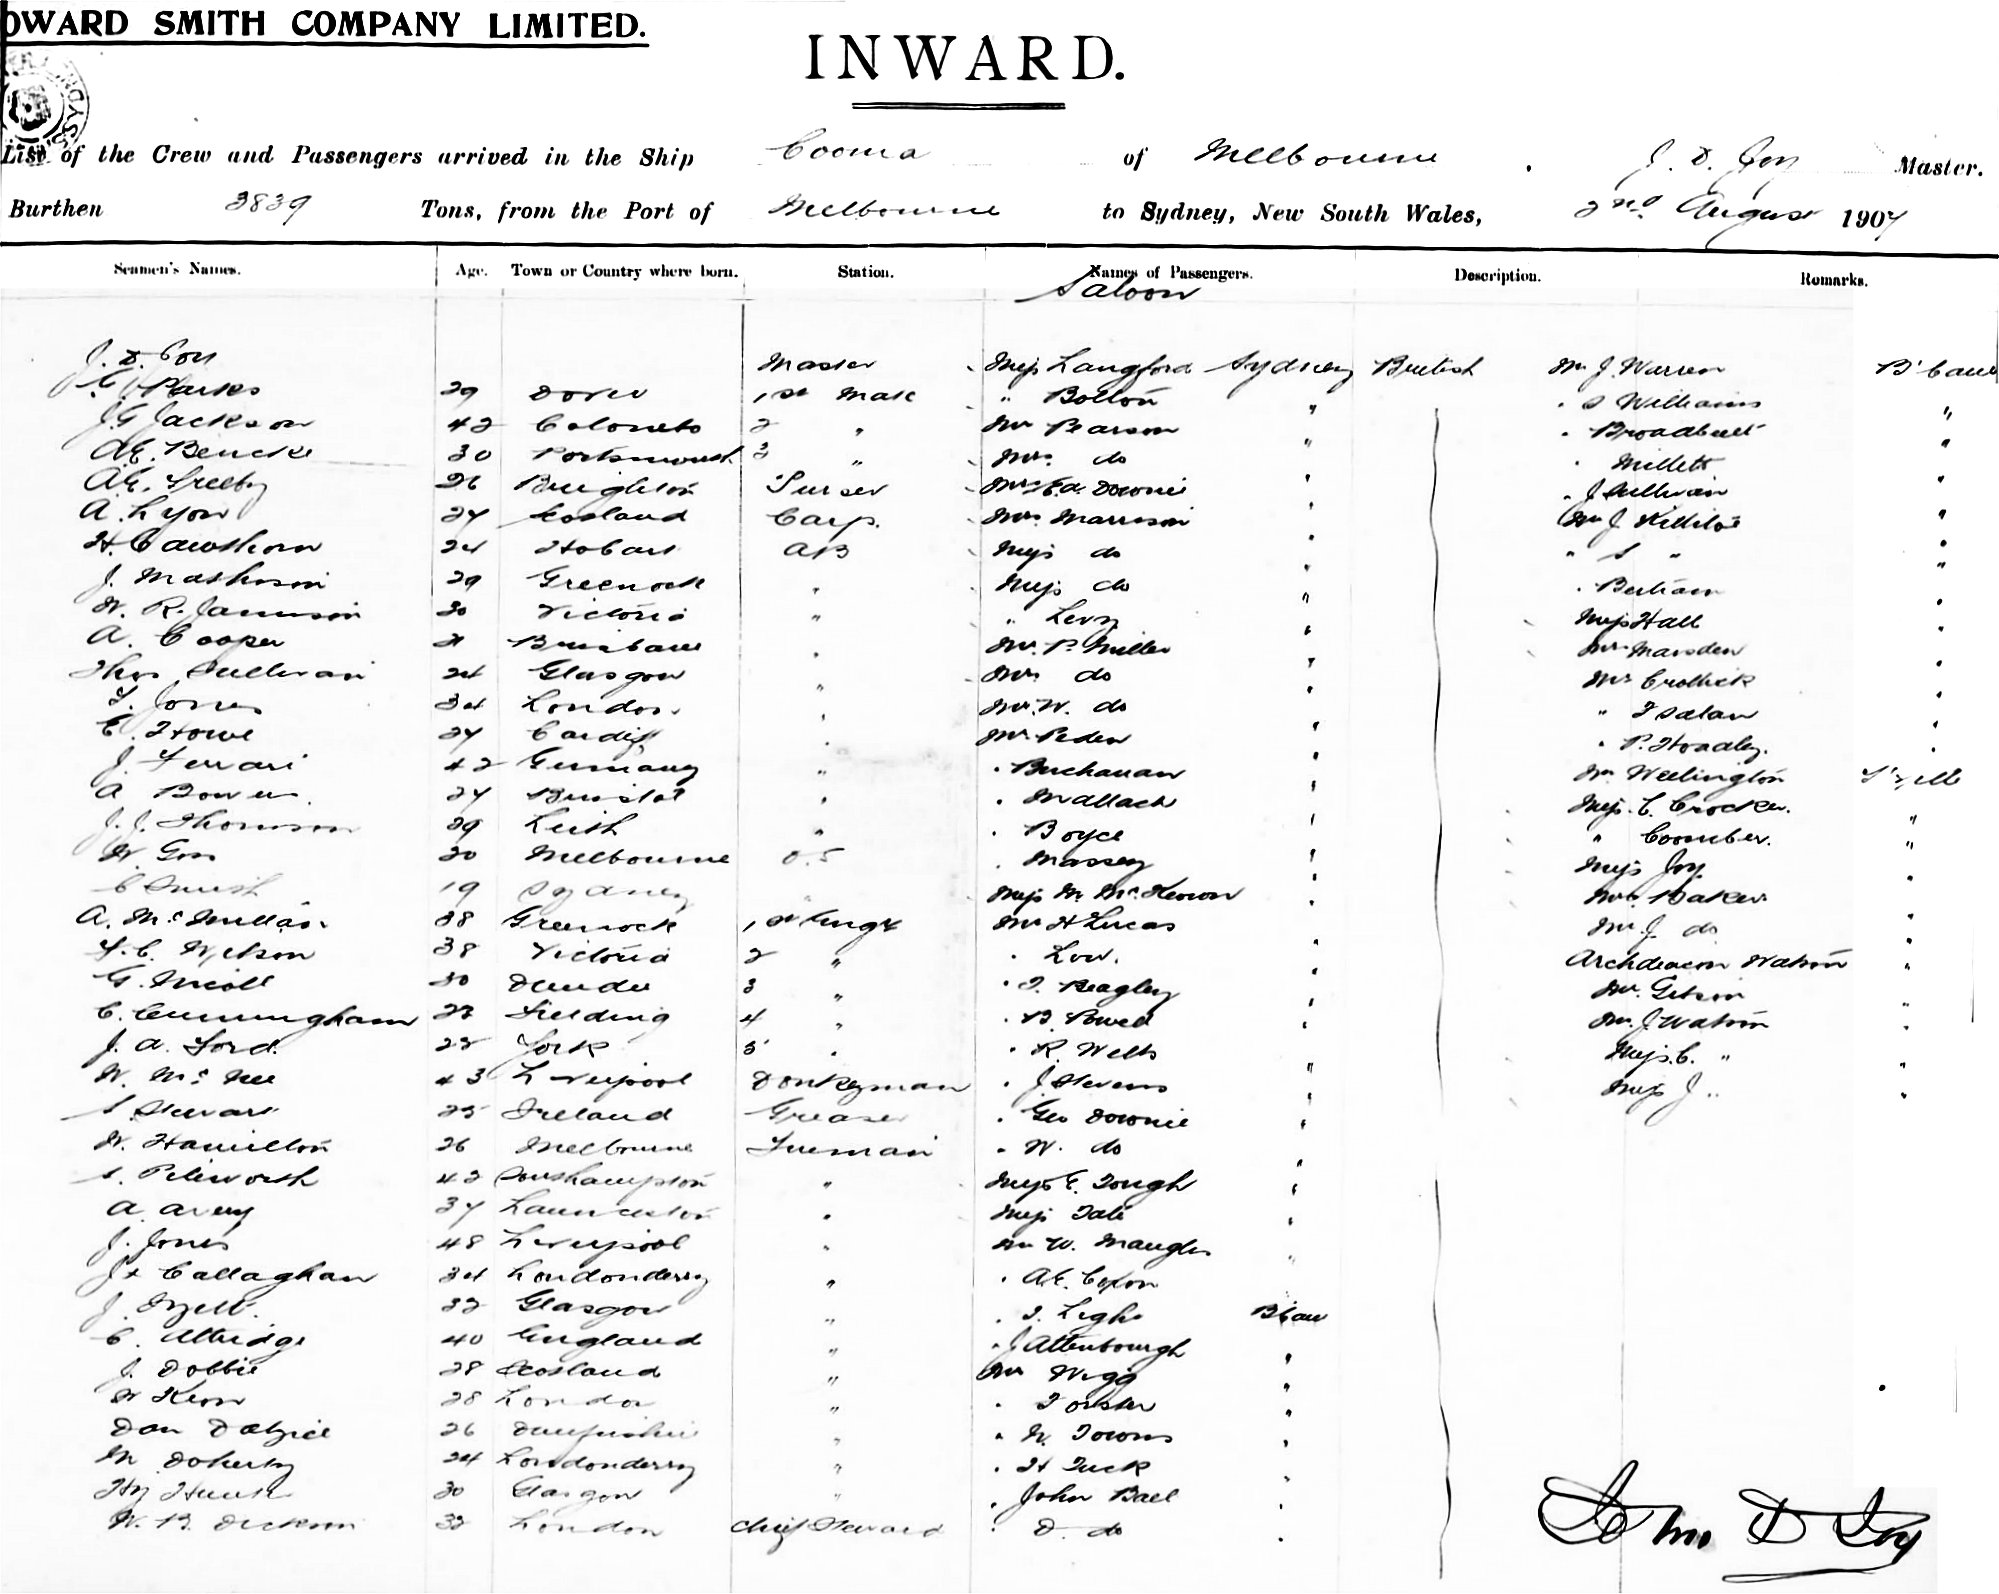 OWARD SMITH COMPANY LIMITED.
INWARD.
List of the Crew and Passengers arrived in the Ship Cooma of Melbourne. J. D. Joy Master.
Burthen 3839 Tons, from the Port of Melbourne to Sydney, New South Wales, 2nd August 1907
Seamen's Names. Age. Town or Country where born. Station. Names of Passengers. Description. Remarks.
Saloon
J. D. Joy Master Miss Langford Sydney British Mr J. Warren B'bane
Parks 29 Dover 1st Mate " Bolton " . S Williams "
J.G Jackson 42 2 " Mr Pearson " . Broadbent "
A.E. Bencke 30 Portsmouth 3 " Mrs. do " . Millett "
A.E. 26 Brighton Purser Downie " . J Sullivan "
A. Lyon 27 Scotland Carp. Mrs. Morrison " Mr J. "
H. Cawthorn 24 Hobart AB Miss do " " S " "
J. Mathison 29 Greenock " Miss do " . Bertram "
W. R. Jamieson 30 Victoria " " Levy " Miss Hall "
A. Cooper 21 Brisbane " Mr. P. Miller " Marsden "
Thos Sullivan 24 Glasgow " Mrs do " Mr "
Jones 34 London " Mr. W. do " " "
C. Howe 27 Cardiff " Mr. Peden " . P. Hoadley. "
J. Ferrari 42 Germany " . Buchanan " Mr Wellington T'ville
A Bower 27 Bristol " . Wallach " Miss. C. Crocker. "
J. J. Thomson 29 Leith " . Boyce " " Coomber. "
W. Goss 20 Melbourne O.S . Massey " Miss Joy "
C Smith 19 Sydney " Miss M. McKeown " Mrs Baker "
A. McMillan 38 Greenock 1st Eng'r Mr H Lucas Mr. J. do "
Nelson 38 Victoria 2 " . Low. " Archdeacon Watson "
G. Nicoll 30 Dundee 3 " . T. Beagley " Mr. Gibson "
C. Cunningham 23 Feilding 4 " . B. Powell " Mr. J. Watson "
J. A. Ford. 22 York 5 " . R. Wells " Miss. C. " "
W. McNee 43 Liverpool Donkeyman . J Stevens " Miss J " "
S. Stewart 25 Ireland Greaser . Geo Downie "
W. Hamilton 26 Melbourne Fireman . W. do "
S. 42 Southampton " Miss E. Gough "
A. Avery 37 Launceston " Miss Tate "
J. Jones 48 Liverpool " Mr W. "
Callaghan 34 Londonderry " . A.E. Coxon "
J. 32 Glasgow " . Light B'bane
C. Attridge 40 England " . J Attenborough "
J. Dobbie 28 Scotland " Mr Wigg "
Keon 28 London " . Forster "
Dan Dalziel 26 " . W. Towns "
M Doherty 24 Londonderry " . H Tuck "
Hy 30 Glasgow " . John Ball "
W. B. Dickson 32 London Chief Steward . D. do "
John D Joy